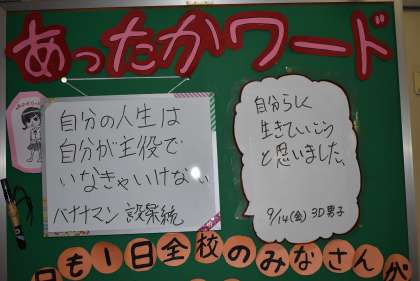 あったかワード
自分の人生は
自分が主役で
いなきゃいけない
バナナマン 設楽統
自分らしく
生きていこう
と思いました。
9/14(金) 3D男子
日も1日全校のみなさんが